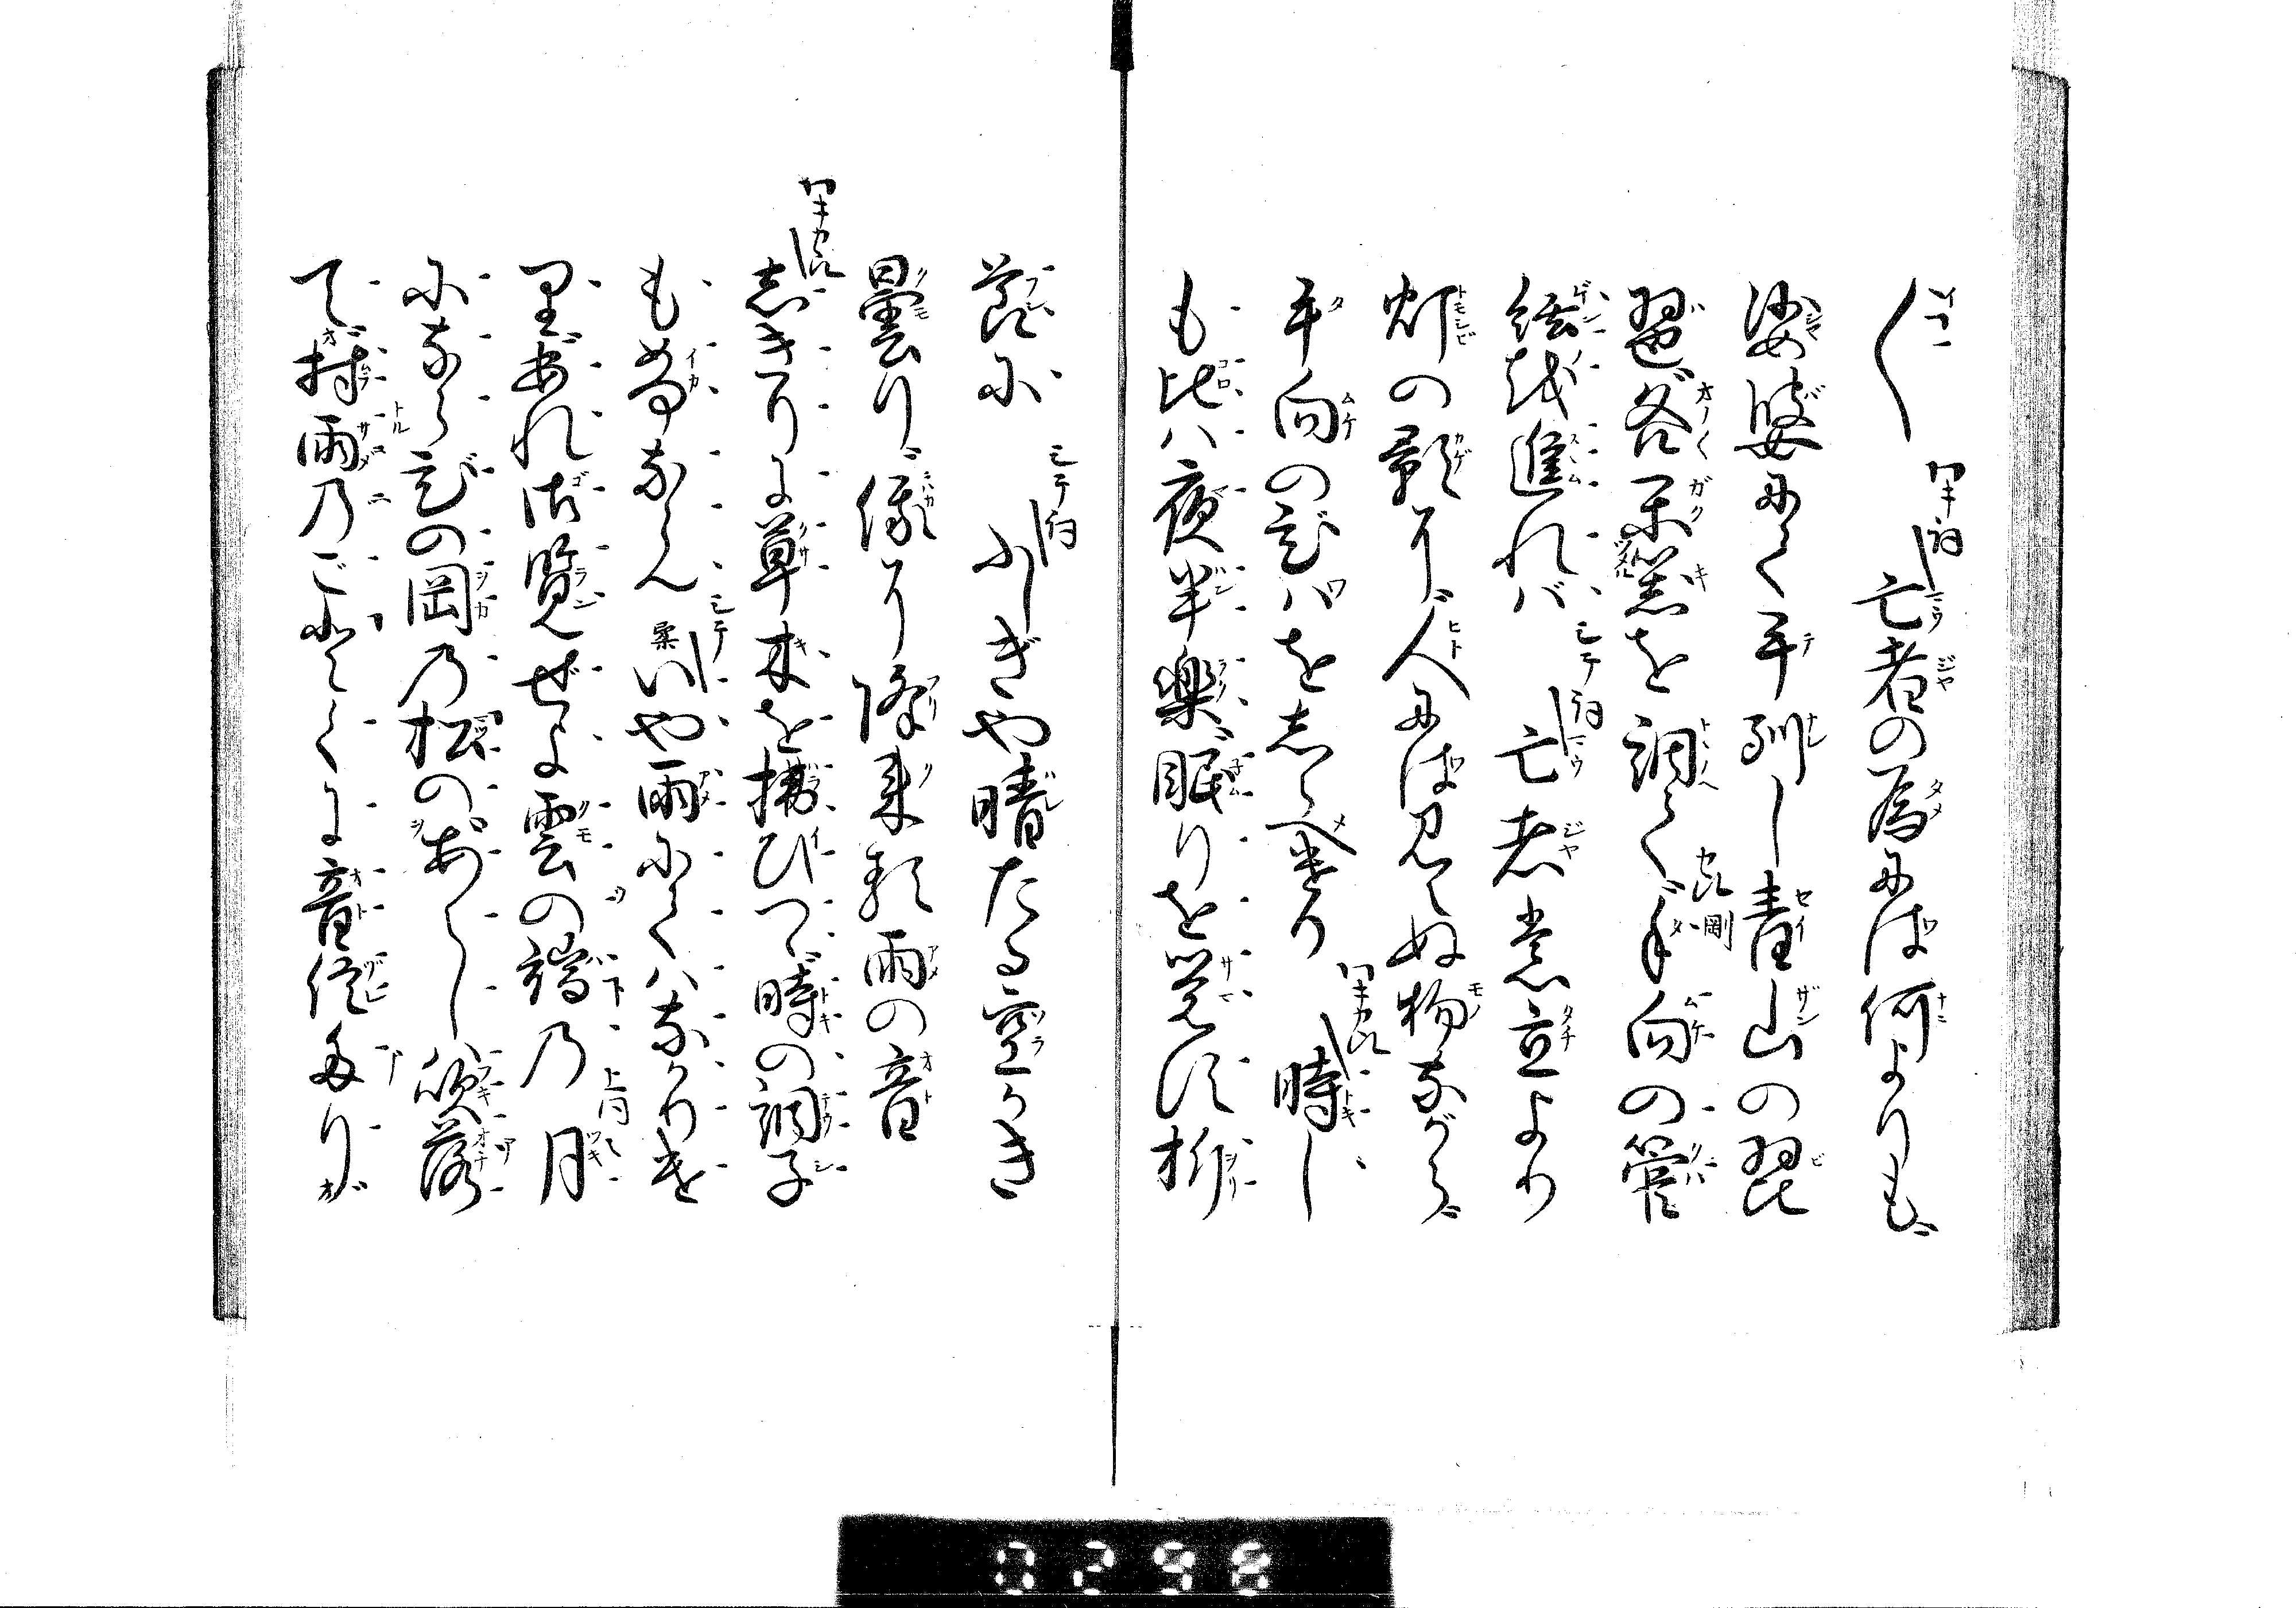 〱 ワキ詞 亡者の為にば何よりも
娑婆にて手馴し青山の琵
琶各楽器を調て手向の管
絃を進れバ シテ詞 亡者も立より
灯の影に人にば見えぬ物ながら
手向の琵バを志らべたり ワキカヽル 時し
も比ハ夜半楽眠りを覚す折
節に シテ詞 ふしぎや晴たる空かき
曇り俄に降来る雨の音
ワキカヽル 志きりに草木を拂ひつゝ時の調子
もいかならん シテ 柔 いや雨にてハなかりけ
里あれ御覧ぜよ雲の端乃月
にならびの岡乃松のあらしハ吹落
て村雨乃ごとくに音信たりオ
0298